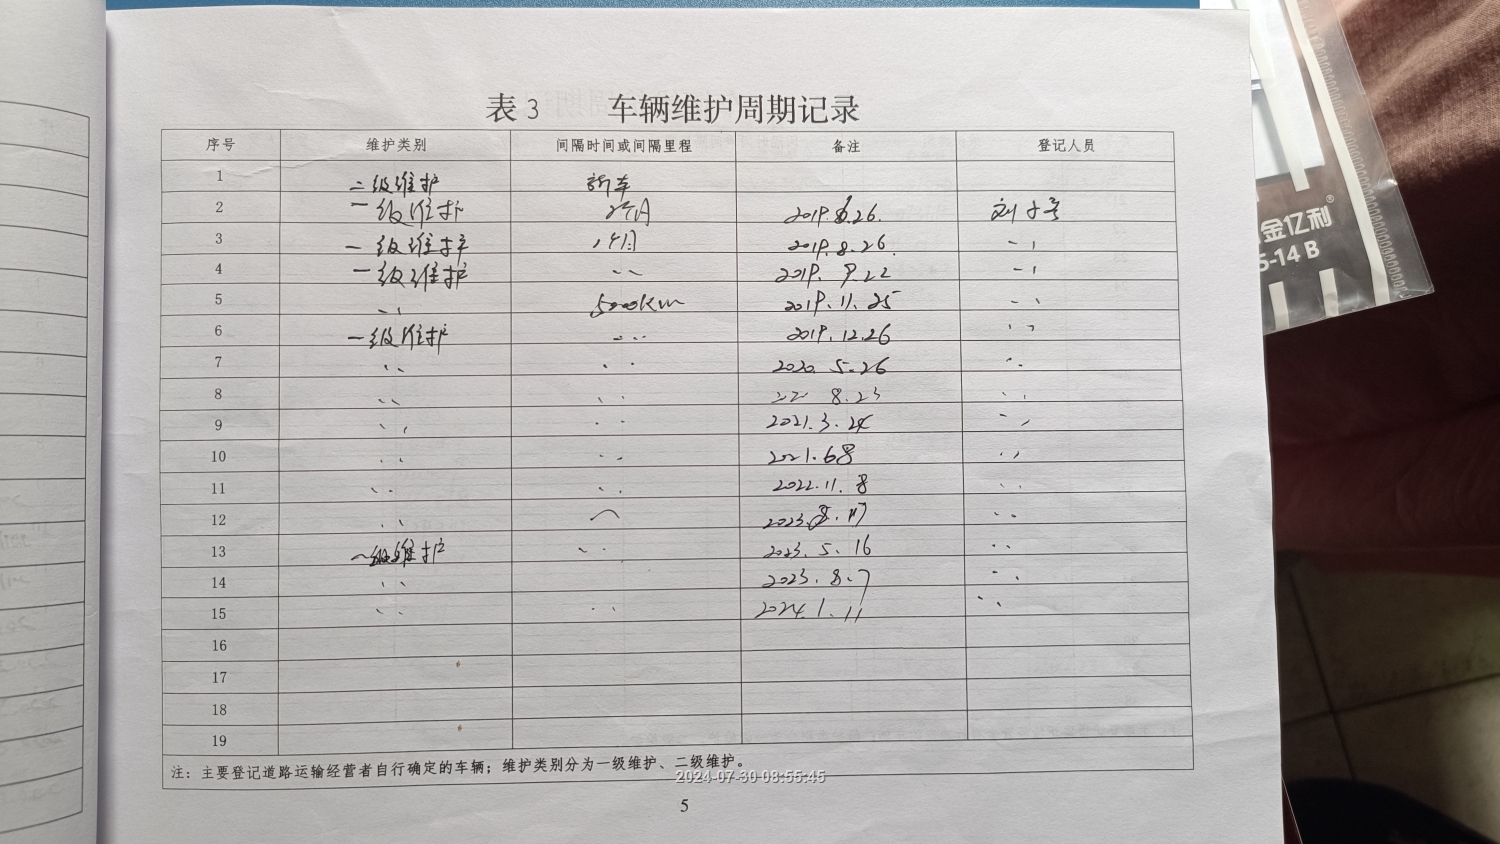 表 3 车辆维护周期记录
序号 维护类别 间隔时间或间隔里程 备注 登记人员
1 二级维护 新车
2 一级维护 2个月 2019.8.26. 刘
3 一级维护 1个月 2019.8.26.
4 一级维护 〃 2019.9.22 〃
5 〃 5000km 2019.11.25 〃
6 一级维护 〃 2019.12.26 〃
7 〃 〃 2020.5.26 〃
8 〃 〃 8.23 〃
9 〃 〃 2021.3.24 〃
10 〃 〃 2021.6.8 〃
11 〃 〃 2022.11.8 〃
12 〃 2023. 〃
13 一级维护 〃 2023.5.16 〃
14 〃 2023.8.7 〃
15 〃 〃 2024.1.11 〃
16
17
18
19
注：主要登记道路运输经营者自行确定的车辆；维护类别分为一级维护、二级维护。
2024-07-30 08:55:45
5
金亿利®
5-14 B